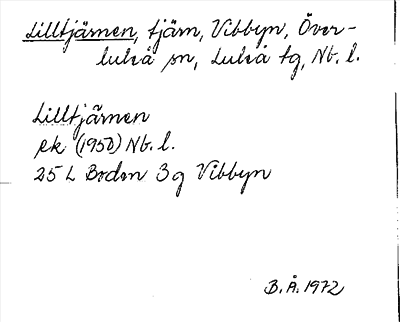 Lilltjärnen, tjärn, Vibbyn, Över-
luleå sn, Luleå tg, Nb. l.
Lilltjärnen
ek (1950) Nb. l.
25 L Boden 3g Vibbyn
B. Å. 1972